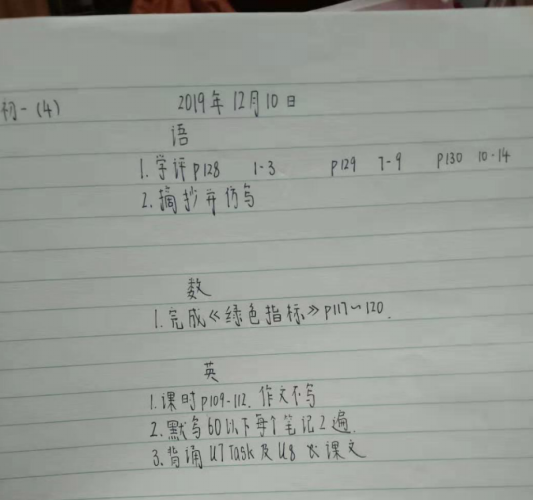 初一(4) 2019年12月10日
语
1.学评P128 1-3 P129 7-9 P130 10-14
2.摘抄并仿写
数
1.完成《绿色指标》P117~120.
英
1.课时P109-112.作文不写
2.默写60以下每个笔记2遍.
3.背诵U7 Task及U8 课文